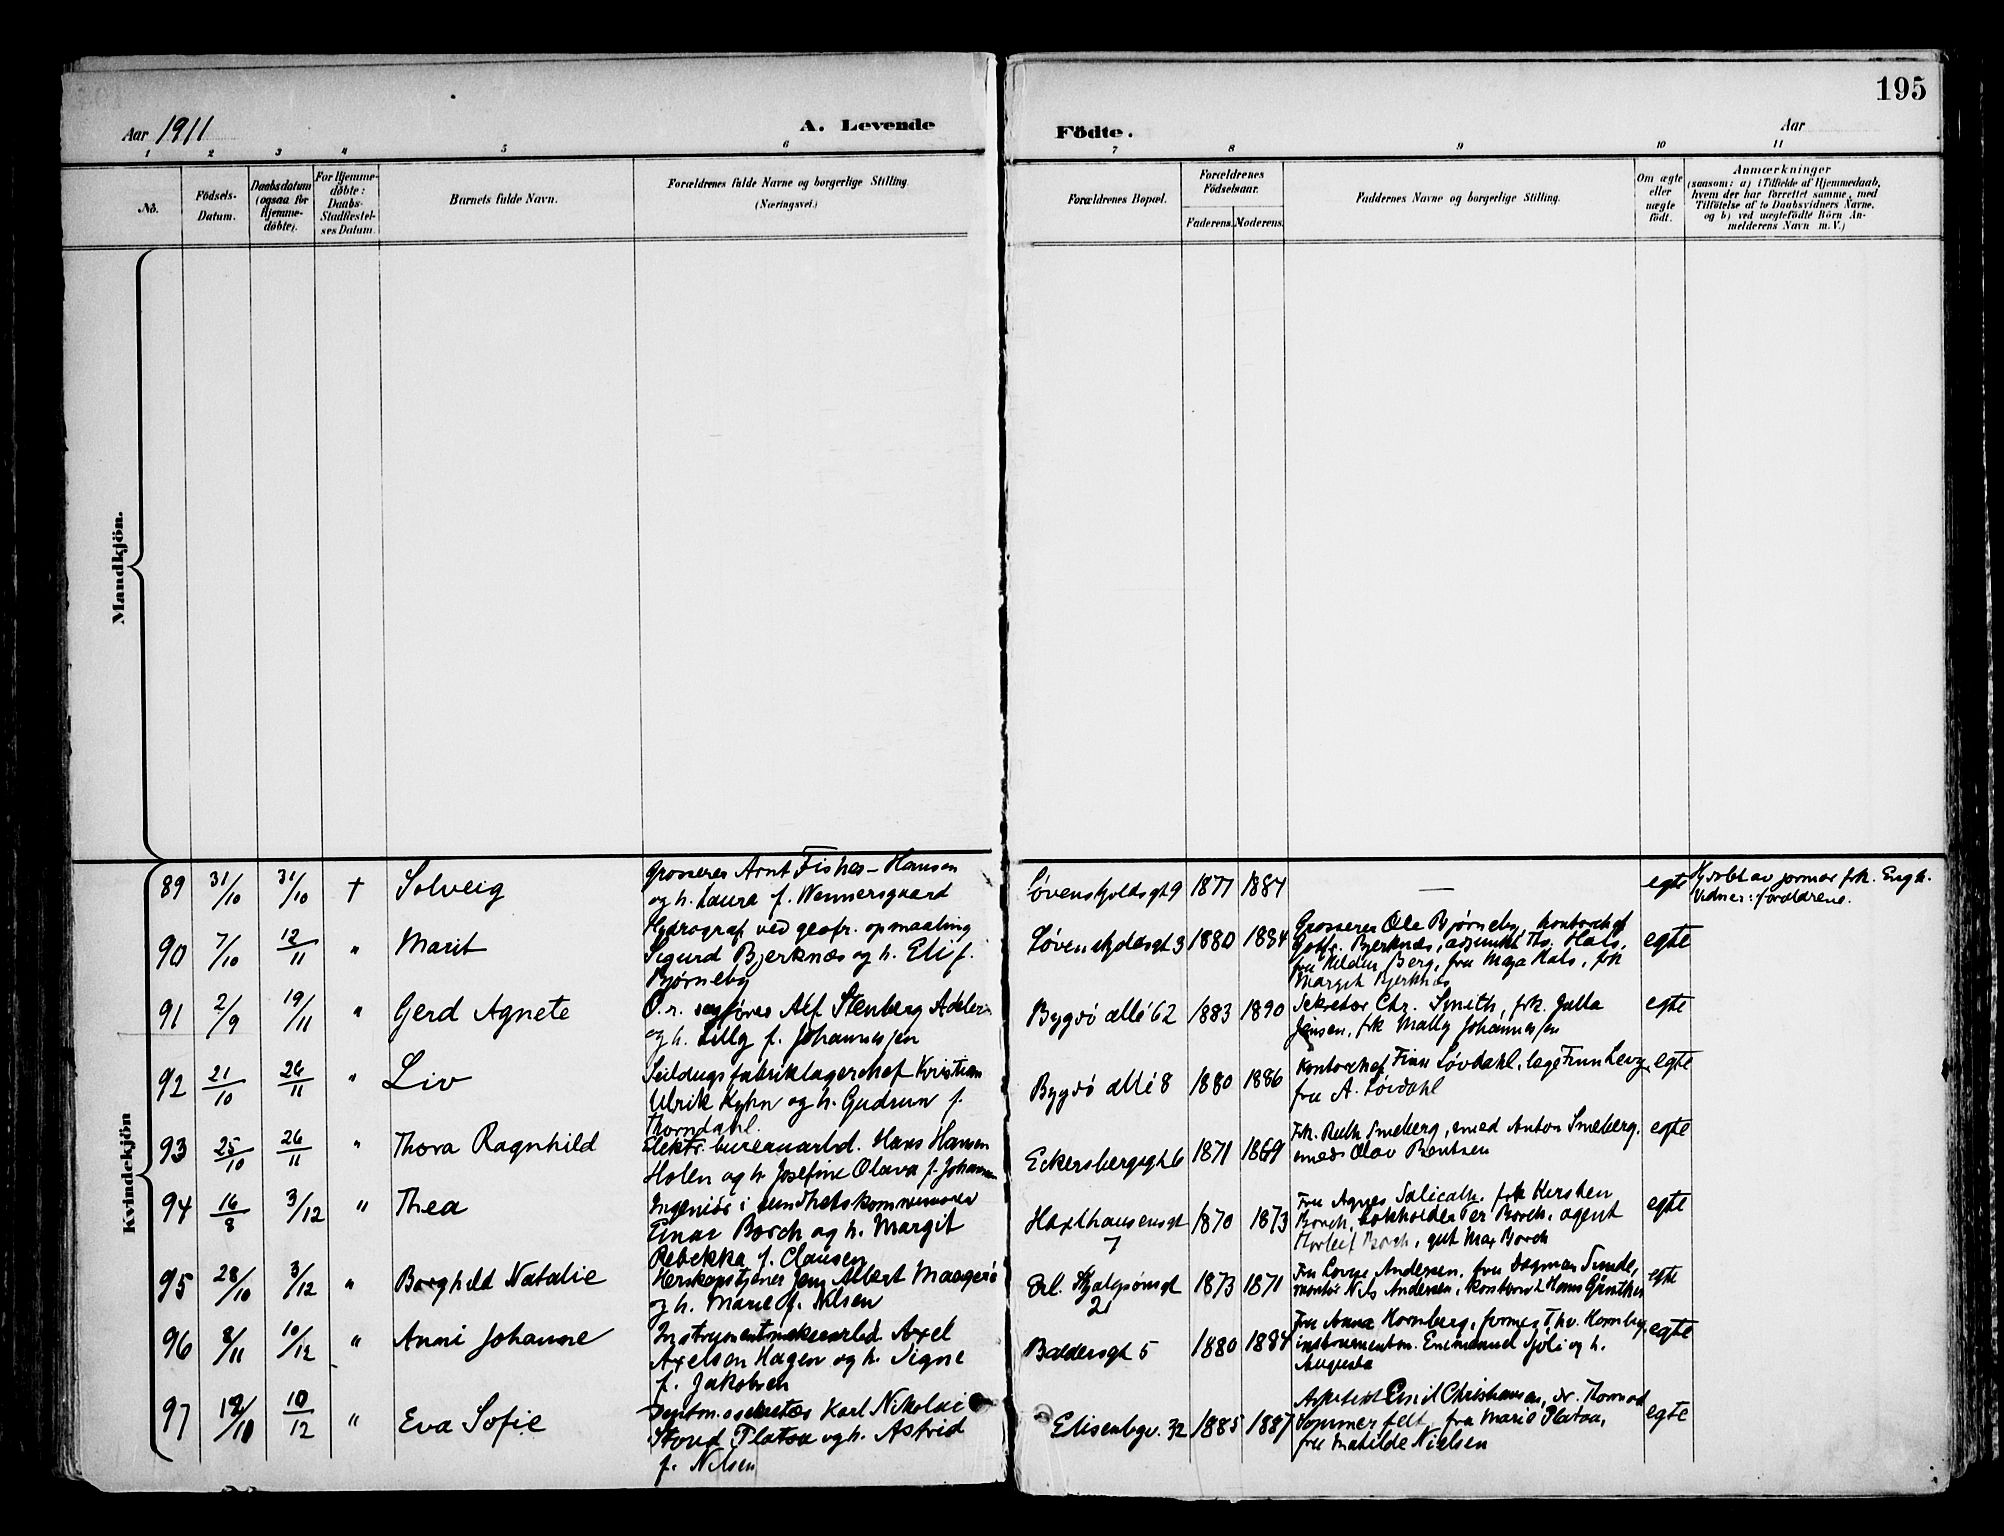 195
Aar 1911
A. Levende
Födte.
Aar
1 2 3 4 5 6 7 8 9 10 11
No.
Födsels-Datum.
Daabsdatum (ogsaa for Hjemme-döbte).
For Hjemme-döbte: Daabs-Stadfæstel-ses Datum.
Barnets fulde Navn.
Forældrenes fulde Navne og borgerlige Stilling.
(Næringsvei.)
Forældrenes Bopæl.
Forældrenes Födselsaar.
Faderens. Moderens.
Faddernes Navne og borgerlige Stilling.
Om ægte eller uægte født.
Anmærkninger
(saasom: a) i Tilfælde af Hjemmedaab,
hvem der har forrettet samme, med
Tilföielse af to Daabsvidners Navne,
og b) ved uægtefödte Börn An-
melderens Navn m. V.)
Mandkjön.
Kvindekjön
89 31/10 31/10 † Solveig
Grosserer Arnt Fisher-Hansen
og h. Laura f. Wennersgaard
Løvenskjoldsgt 9 1877 1884 — egte
Hj.døbt av jormor frk. Engh.
Vidner: forældrene.
90 7/10 12/11 " Marit
Hydrograf ved geofr. opmaaling
Sigurd Bjerknæs og h. Eli f.
Bjørneby
Løvenskjoldsgt 3 1880 1884
Grosserer Ole Bjørneby, kontorchef
Gottfr. Bjerknæs, adjunkt Th. Hals,
fru Hildur Berg, fru Maja Hals, frk
Margit Bjerknæs
egte
91 2/9 19/11 " Gerd Agnete
O.r. sagfører Alf Stenberg Adeler
og h. Lilly f. Johannessen
Bygdö allé 62 1883 1890
Sekretær Chr. Smith, frk. Julla
Jensen, frk Mally Johannessen
egte
92 21/10 26/11 " Liv
Seildugsfabriklagerchef Kristian
Ulrik Kyhn og h. Gudrun f.
Thorndahl.
Bygdö allé 8 1880 1886
Kontorchef Finn Løvdahl, læge Finn Levy,
fru A. Løvdahl
egte
93 25/10 26/11 " Thora Ragnhild
Elektr. bureauarbd. Hans Hansen
Holen og h. Josefine Olava f. Johansen
Eckersbergsgt 6 1871 1869
Frk. Ruth Smeberg, smed Anton Smeberg,
smed Olav Bentsen
egte
94 16/8 3/12 " Thea
Ingeniør i sundhetskommissionen
Einar Borch og h. Margit
Rebekka f. Clausen
Haxthausensgt 7 1870 1873
Fru Agnes Salicath, frk Kirsten
Borch, bokholder Per Borch, agent
Thorleif Borch, gut Max Borch
egte
95 28/10 3/12 " Borghild Natalie
Herskapstjener Jens Albert Maagerø
og h. Marie f. Nilsen
Erl. Skjalgsönsgt 2 1873 1871
Fru Lovise Andersen, fru Dagmar Sunde,
montør Nils Andersen, kontorist Hans Günther
egte
96 8/11 10/12 " Anni Johanne
Instrumentmakerarbd Axel
Axelsen Hagen og h. Signe
f. Jakobsen
Baldersgt 5 1880 1884
Fru Anna Hornberg, former Thv. Hornberg,
instrumentm. Emmanuel Sjöli og h.
Augusta
egte
97 10/12 " Eva Sofie
Karl Nikolai
Stoud Platou og h. Astrid
f. Nilsen
Elisenbgv. 32 1885 1887
Arkitekt Emil Christiansen, dr. Thorvald
Sommerfelt, fru Marie Platou,
fru Matilde Nielsen
egte